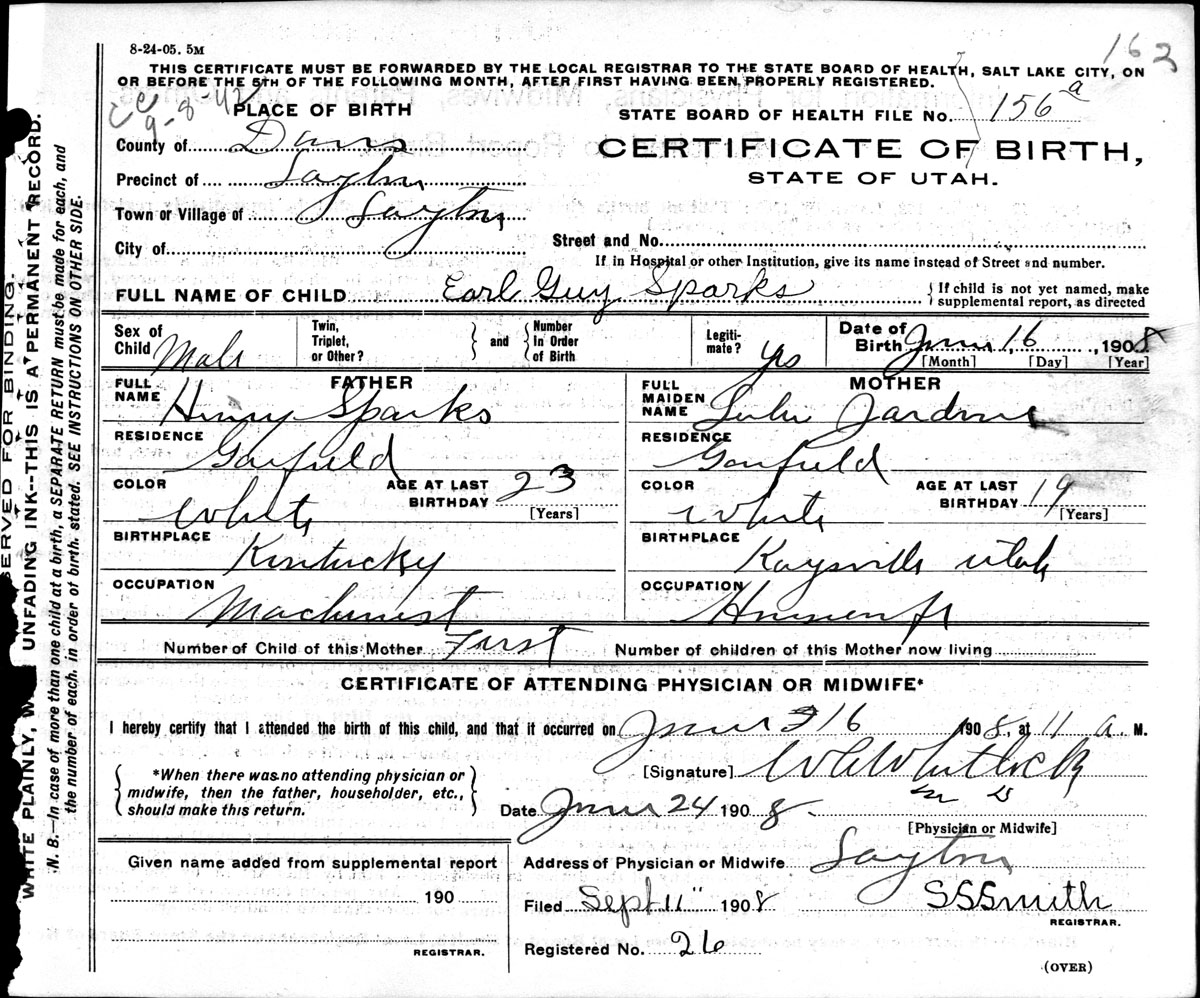 8-24-05. 5M
162
THIS CERTIFICATE MUST BE FORWARDED BY THE LOCAL REGISTRAR TO THE STATE BOARD OF HEALTH, SALT LAKE CITY, ON
OR BEFORE THE 5TH OF THE FOLLOWING MONTH, AFTER FIRST HAVING BEEN PROPERLY REGISTERED.
9-8-42
PLACE OF BIRTH
STATE BOARD OF HEALTH FILE No. 156 a
County of Davis
CERTIFICATE OF BIRTH,
STATE OF UTAH.
Precinct of Layton
Town or Village of Layton
City of
Street and No.
If in Hospital or other Institution, give its name instead of Street and number.
FULL NAME OF CHILD Earl Guy Sparks
If child is not yet named, make
supplemental report, as directed
Sex of Child Male
Twin, Triplet, or Other?
and
Number In Order of Birth
Legitimate? yes
Date of Birth June 16, 1908
[Month] [Day] [Year]
FATHER
FULL NAME Henry Sparks
MOTHER
FULL MAIDEN NAME Lulu Jardine
RESIDENCE Garfield
RESIDENCE Garfield
COLOR White
AGE AT LAST BIRTHDAY 23
[Years]
COLOR White
AGE AT LAST BIRTHDAY 19
[Years]
BIRTHPLACE Kentucky
BIRTHPLACE Kaysville Utah
OCCUPATION Machinist
OCCUPATION Housewife
Number of Child of this Mother First
Number of children of this Mother now living
CERTIFICATE OF ATTENDING PHYSICIAN OR MIDWIFE*
I hereby certify that I attended the birth of this child, and that it occurred on June 16 1908, at 11 a M.
*When there was no attending physician or
midwife, then the father, householder, etc.,
should make this return.
[Signature] Whitlock
Date June 24 1908
[Physician or Midwife]
Given name added from supplemental report
190
REGISTRAR.
Address of Physician or Midwife Layton
Filed Sept 11" 1908
S S Smith
REGISTRAR.
Registered No. 26
(OVER)
SERVED FOR BINDING.
UNFADING INK--THIS IS A PERMANENT RECORD.
WRITE PLAINLY, W
N. B.—In case of more than one child at a birth, a SEPARATE RETURN must be made for each, and
the number of each, in order of birth, stated. SEE INSTRUCTIONS ON OTHER SIDE.